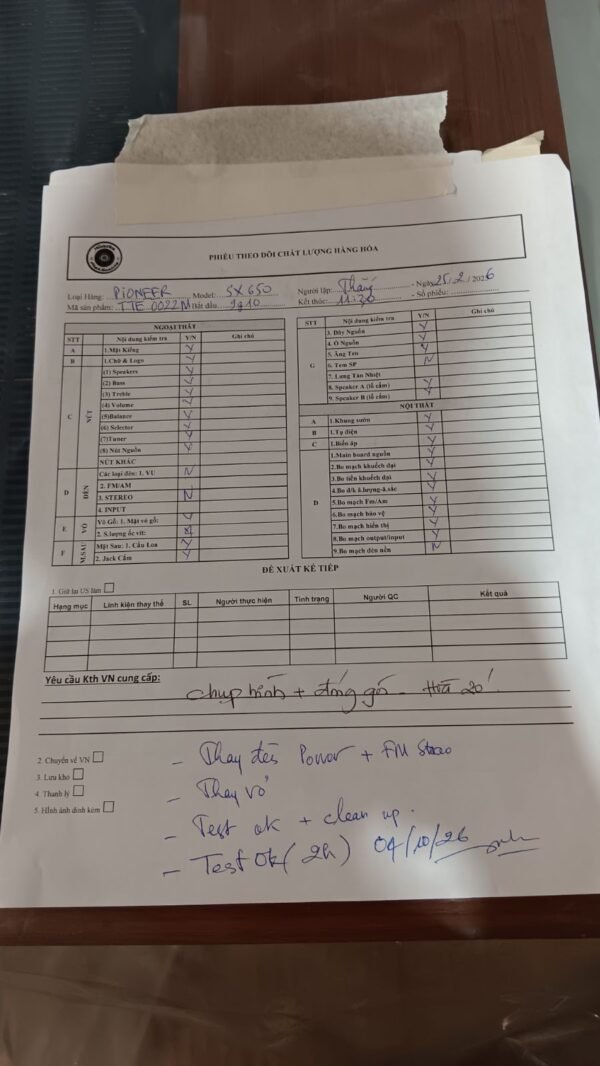 PHIẾU THEO DÕI CHẤT LƯỢNG HÀNG HÓA
Loại Hàng: PIONEER Model: SX 650 Người lập: Thắng - Ngày 25/2/2026
Mã sản phẩm: TTE 0022M Bắt đầu: 9g10 Kết thúc: 11:30 - Số phiếu:
NGOẠI THẤT
STT Nội dung kiểm tra Y/N Ghi chú
A 1.Mặt Kiếng Y
B 1.Chữ & Logo Y
C NÚT
(1) Speakers Y
(2) Bass Y
(3) Treble Y
(4) Volume Y
(5)Balance Y
(6) Selector Y
(7)Tuner Y
(8) Nút Nguồn Y
NÚT KHÁC
D ĐÈN
Các loại đèn: 1. VU N
2. FM/AM
3. STEREO N
4. INPUT
E VỎ
Vỏ Gỗ: 1. Mặt vỏ gỗ:
2. S.lượng ốc vít:
F M.SAU
Mặt Sau: 1. Cầu Loa Y
2. Jack Cắm Y
STT Nội dung kiểm tra Y/N Ghi chú
G
3. Dây Nguồn Y
4. Ổ Nguồn Y
5. Ăng Ten Y
6. Tem SP N
7. Lung Tản Nhiệt
8. Speaker A (lỗ cắm) Y
9. Speaker B (lỗ cắm) Y
NỘI THẤT
A 1.Khung sườn Y
B 1.Tụ điện Y
C 1.Biến áp Y
D
1.Main board nguồn Y
2.Bo mạch khuếch đại Y
3.Bo tiền khuếch đại Y
4.Bo đ/k â.lượng-â.sắc Y
5.Bo mạch Fm/Am Y
6.Bo mạch bảo vệ Y
7.Bo mạch hiển thị Y
8.Bo mạch output/input Y
9.Bo mạch đèn nền N
ĐỀ XUẤT KẾ TIẾP
1. Giữ lại US làm
Hạng mục Linh kiện thay thế SL Người thực hiện Tình trạng Người QC Kết quả
Yêu cầu Kth VN cung cấp:
chụp hình + đóng gói - Hứa 20'
2. Chuyển về VN
3. Lưu kho
4. Thanh lý
5. Hình ảnh đính kèm
- Thay đèn Power + FM Stereo
- Thay vỏ
- Test ok + clean up.
- Test ok (2h) 04/10/26